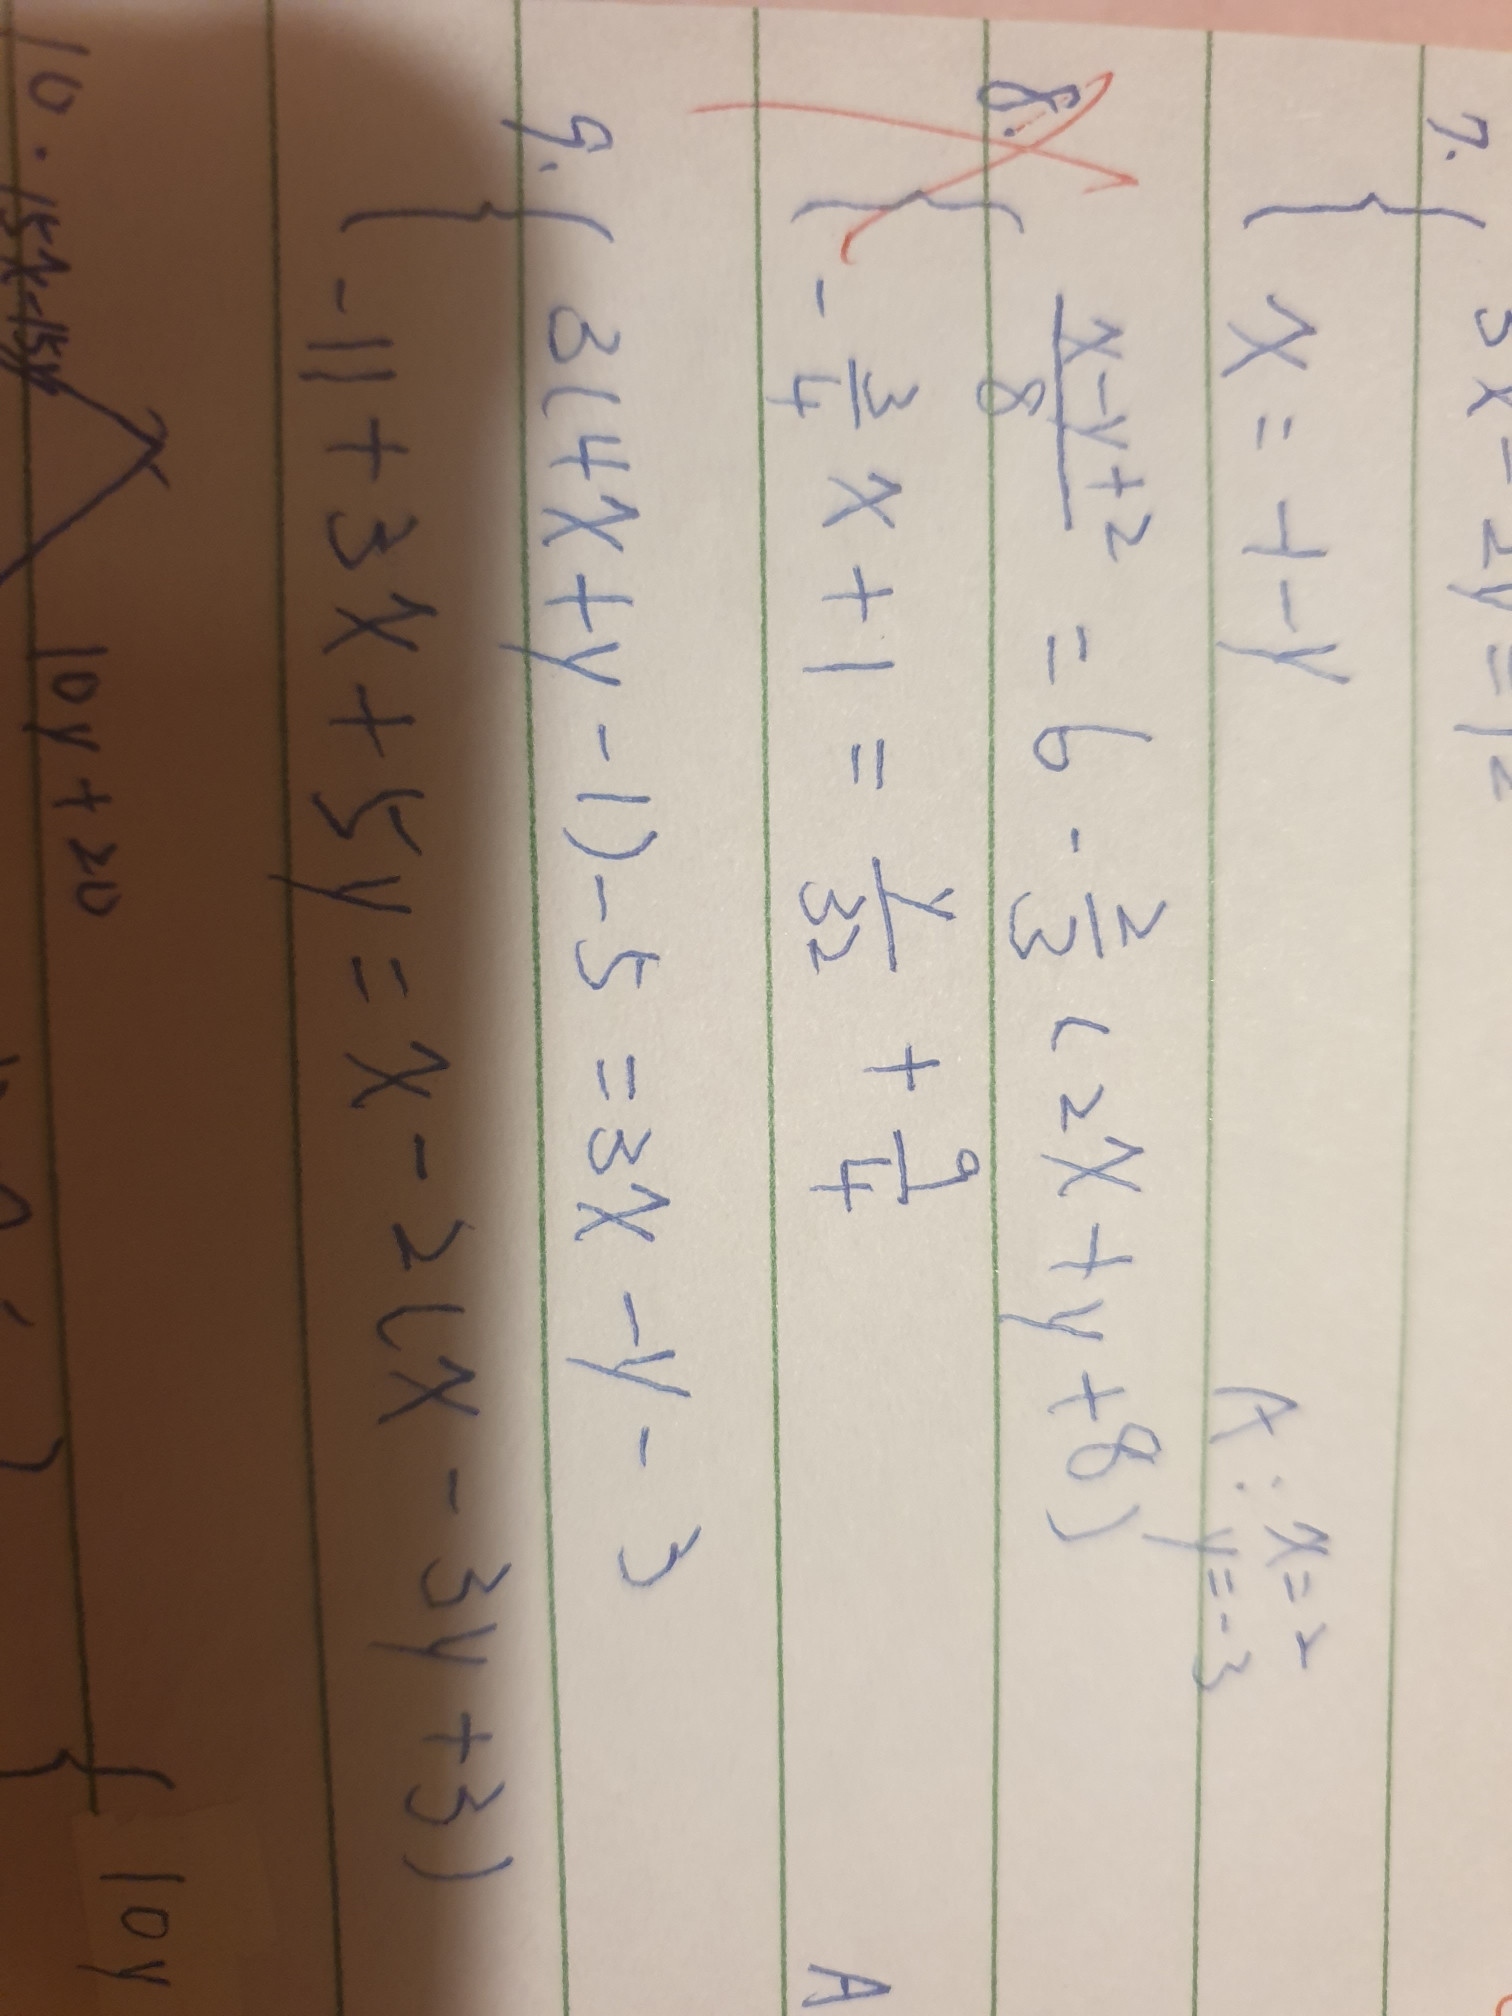 7. { 3x-2y=12
x=-1-y
A: x=2
y=-3
8. { (x-y+2)/8 = 6 - 2/3 (2x+y+8)
-3/4 x+1 = y/32 + 9/4
A
9. { 3(4x+y-1)-5=3x-y-3
-11+3x+5y=x-2(x-3y+3)
10. 15x-15y
10y+20
{ 10y